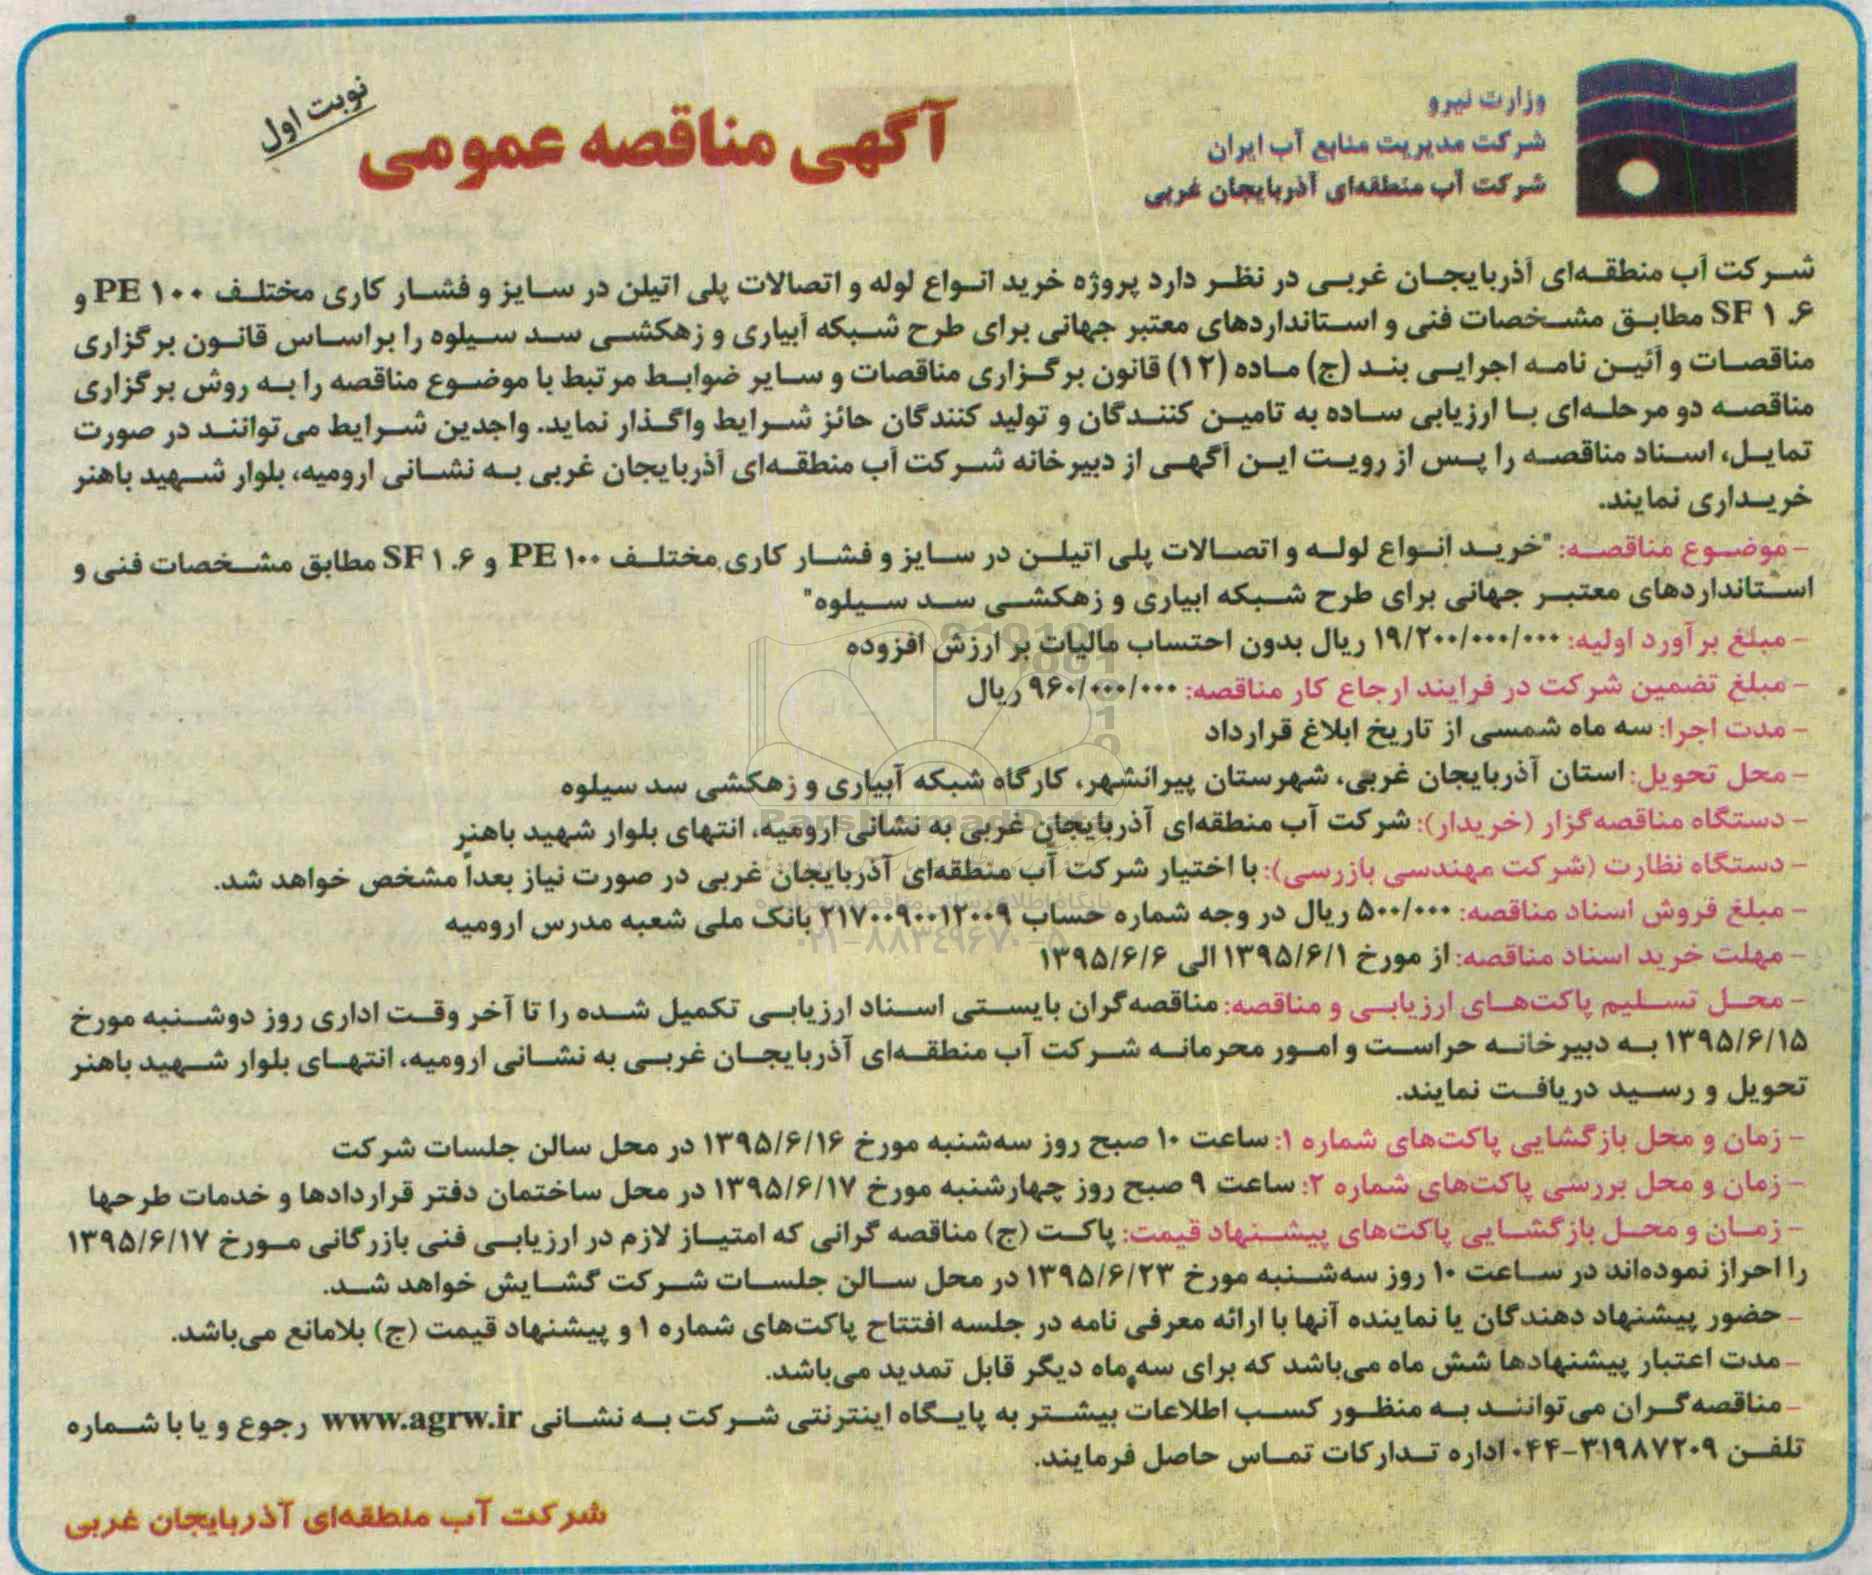 وزارت نیرو
شرکت مدیریت منابع آب ایران
شرکت آب منطقه‌ای آذربایجان غربی
آگهی مناقصه عمومی
نوبت اول
شرکت آب منطقه‌ای آذربایجان غربی در نظر دارد پروژه خرید انواع لوله و اتصالات پلی اتیلن در سایز و فشار کاری مختلف PE ۱۰۰ و
SF ۱.۶ مطابق مشخصات فنی و استانداردهای معتبر جهانی برای طرح شبکه آبیاری و زهکشی سد سیلوه را براساس قانون برگزاری
مناقصات و آئین نامه اجرایی بند (ج) ماده (۱۲) قانون برگزاری مناقصات و سایر ضوابط مرتبط با موضوع مناقصه را به روش برگزاری
مناقصه دو مرحله‌ای با ارزیابی ساده به تامین کنندگان و تولید کنندگان حائز شرایط واگذار نماید. واجدین شرایط می‌توانند در صورت
تمایل، اسناد مناقصه را پس از رویت این آگهی از دبیرخانه شرکت آب منطقه‌ای آذربایجان غربی به نشانی ارومیه، بلوار شهید باهنر
خریداری نمایند.
- موضوع مناقصه: "خرید انواع لوله و اتصالات پلی اتیلن در سایز و فشار کاری مختلف PE ۱۰۰ و SF ۱.۶ مطابق مشخصات فنی و
استانداردهای معتبر جهانی برای طرح شبکه ابیاری و زهکشی سد سیلوه"
- مبلغ برآورد اولیه: ۱۹/۲۰۰/۰۰۰/۰۰۰ ریال بدون احتساب مالیات بر ارزش افزوده
- مبلغ تضمین شرکت در فرایند ارجاع کار مناقصه: ۹۶۰/۰۰۰/۰۰۰ ریال
- مدت اجرا: سه ماه شمسی از تاریخ ابلاغ قرارداد
- محل تحویل: استان آذربایجان غربی، شهرستان پیرانشهر، کارگاه شبکه آبیاری و زهکشی سد سیلوه
- دستگاه مناقصه‌گزار (خریدار): شرکت آب منطقه‌ای آذربایجان غربی به نشانی ارومیه، انتهای بلوار شهید باهنر
- دستگاه نظارت (شرکت مهندسی بازرسی): با اختیار شرکت آب منطقه‌ای آذربایجان غربی در صورت نیاز بعداً مشخص خواهد شد.
- مبلغ فروش اسناد مناقصه: ۵۰۰/۰۰۰ ریال در وجه شماره حساب ۲۱۷۰۰۹۰۰۱۲۰۰۹ بانک ملی شعبه مدرس ارومیه
- مهلت خرید اسناد مناقصه: از مورخ ۱۳۹۵/۶/۱ الی ۱۳۹۵/۶/۶
- محل تسلیم پاکت‌های ارزیابی و مناقصه: مناقصه‌گران بایستی اسناد ارزیابی تکمیل شده را تا آخر وقت اداری روز دوشنبه مورخ
۱۳۹۵/۶/۱۵ به دبیرخانه حراست و امور محرمانه شرکت آب منطقه‌ای آذربایجان غربی به نشانی ارومیه، انتهای بلوار شهید باهنر
تحویل و رسید دریافت نمایند.
- زمان و محل بازگشایی پاکت‌های شماره ۱: ساعت ۱۰ صبح روز سه‌شنبه مورخ ۱۳۹۵/۶/۱۶ در محل سالن جلسات شرکت
- زمان و محل بررسی پاکت‌های شماره ۲: ساعت ۹ صبح روز چهارشنبه مورخ ۱۳۹۵/۶/۱۷ در محل ساختمان دفتر قراردادها و خدمات طرحها
- زمان و محل بازگشایی پاکت‌های پیشنهاد قیمت: پاکت (ج) مناقصه گرانی که امتیاز لازم در ارزیابی فنی بازرگانی مورخ ۱۳۹۵/۶/۱۷
را احراز نموده‌اند در ساعت ۱۰ روز سه‌شنبه مورخ ۱۳۹۵/۶/۲۳ در محل سالن جلسات شرکت گشایش خواهد شد.
- حضور پیشنهاد دهندگان یا نماینده آنها با ارائه معرفی نامه در جلسه افتتاح پاکت‌های شماره ۱ و پیشنهاد قیمت (ج) بلامانع می‌باشد.
- مدت اعتبار پیشنهادها شش ماه می‌باشد که برای سه ماه دیگر قابل تمدید می‌باشد.
- مناقصه‌گران می‌توانند به منظور کسب اطلاعات بیشتر به پایگاه اینترنتی شرکت به نشانی www.agrw.ir رجوع و یا با شماره
تلفن ۳۱۹۸۷۲۰۹-۰۴۴ اداره تدارکات تماس حاصل فرمایند.
شرکت آب منطقه‌ای آذربایجان غربی